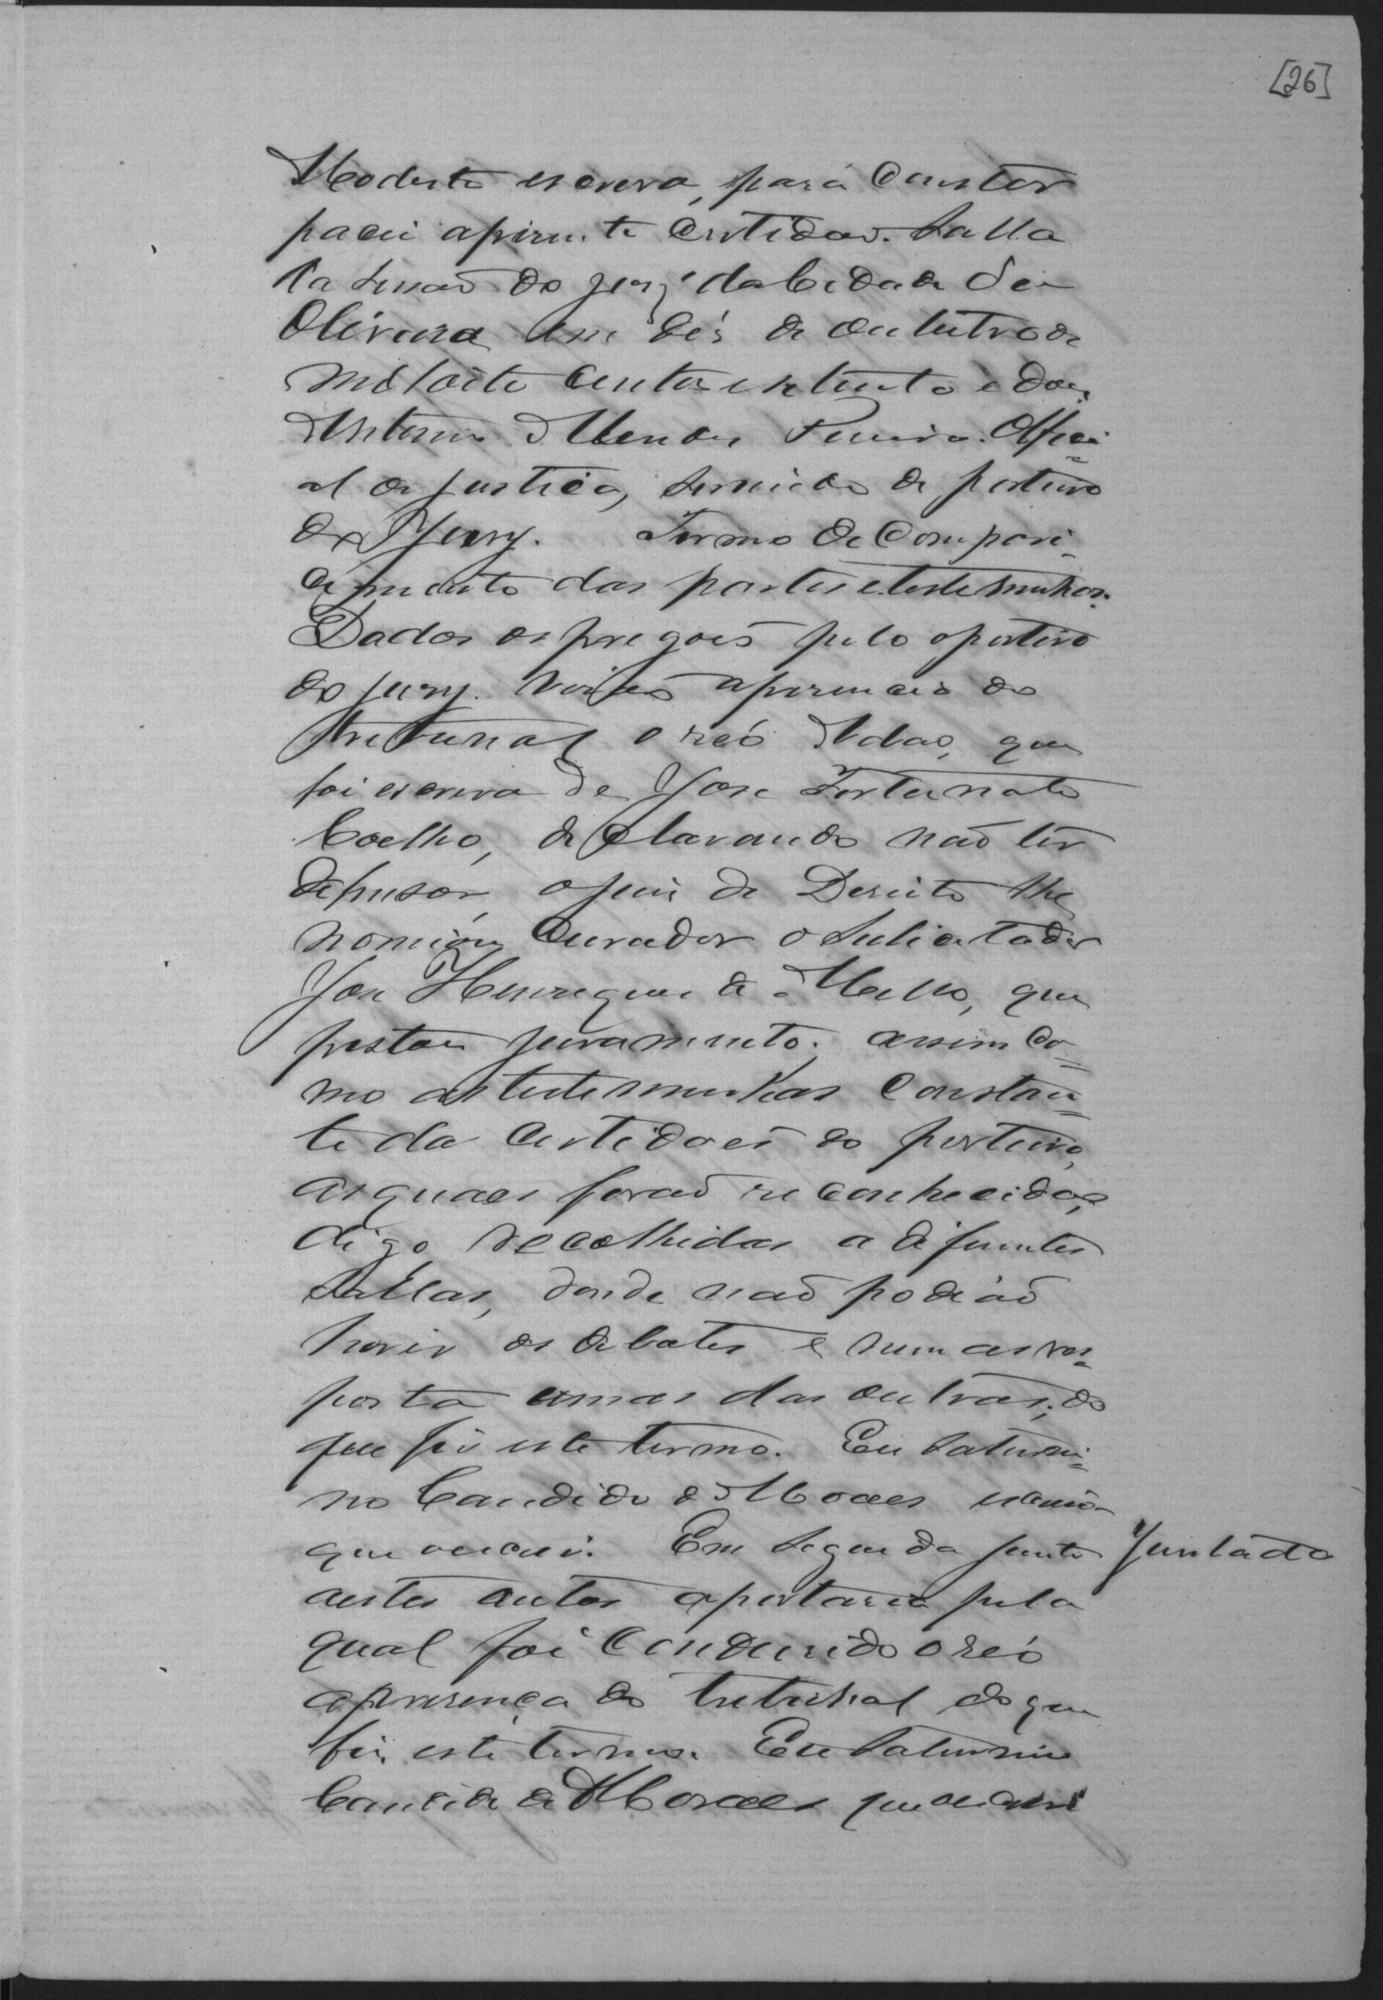 [26]
Modesto escrava, para Constar
pacei apresente Certidaõ. Salla
da Sessaõ do jury da Cidade de
Oliveira em dés de outubro de
mil oito centos e setenta e dois
Antonio Mendes Pereira. Offici=
al de justiça, servindo de porteiro
do Jury. Termo de Compari=
cimento das partes e testemunhas.
Dados os pregoẽs pelo oporteiro
do jury. vierão apresencia do
tribunal o reó Adaõ, que
foi escravo de Jose Fortunato
Coelho, declarando naõ ter
defensor, o juis de Dereito lhe
nomiou Curador o Sulicitador
Jose Henriques de Mello, que
prestou juramento. assim Co=
mo as testemunhas Constan=
te da Certidoẽs do porteiro,
as quaes foraõ reconhecidas,
digo, recolhidas a diferentes
Sallas, donde naõ podiaõ
houvir os debates e nem as res=
posta umas das outras, do
que fis este termo. Eu Saturni=
no Candido de Moraes escrivaõ
que escrevi. Em seguida junto Juntada
aestes autos aportaria pela
qual foi Conduzido o reó
apresença do tribunal do que
fis este termo. Eu Saturnino
Candido de Moraes que escrevi